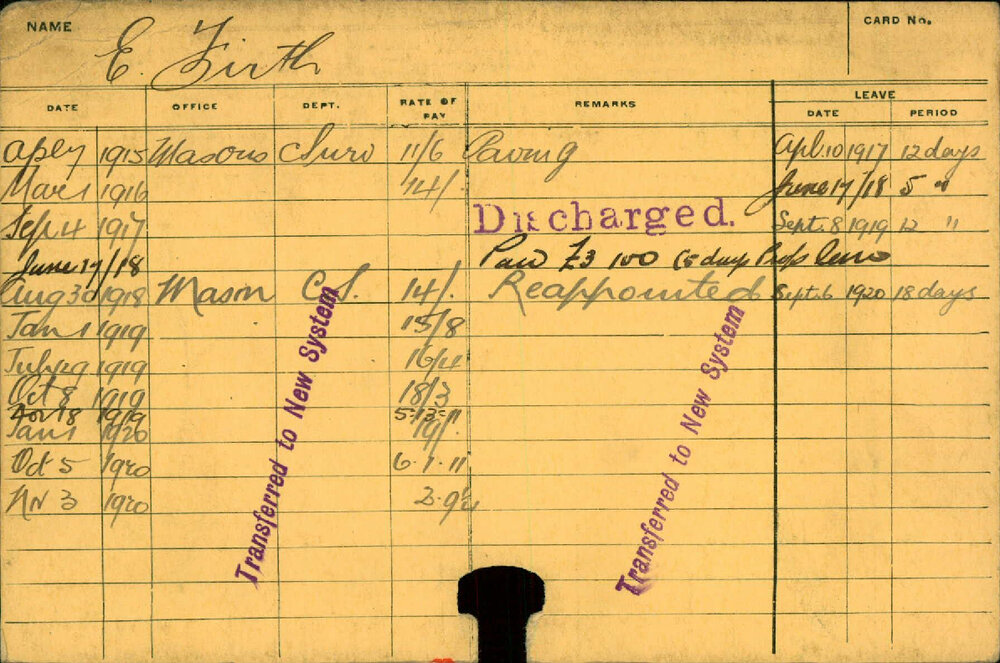 NAME E. Firth CARD No.
LEAVE
DATE OFFICE DEPT. RATE OF PAY REMARKS DATE PERIOD
Apl 7 1915 Masons Surv 11/6 Paving Apl. 10 1917 12 days
Mar 1 1916 14/- June 17/18 5 "
Sep. 4 1917 Discharged. Sept. 8 1919 12 "
June 17/18 Paid £3 10 0 (5 days
Aug 30 1918 Mason C.S. 14/- Reappointed Sept. 6 1920 18 days
Jan 1 1919 15/8
July 29 1919 16/4
Oct 8 1919 18/3
Nov 18 1919 5=13=11
Jan 1 1920 19/-
Oct 5 1920 6.7.11
Nv 3 1920
Transferred to New System
Transferred to New System